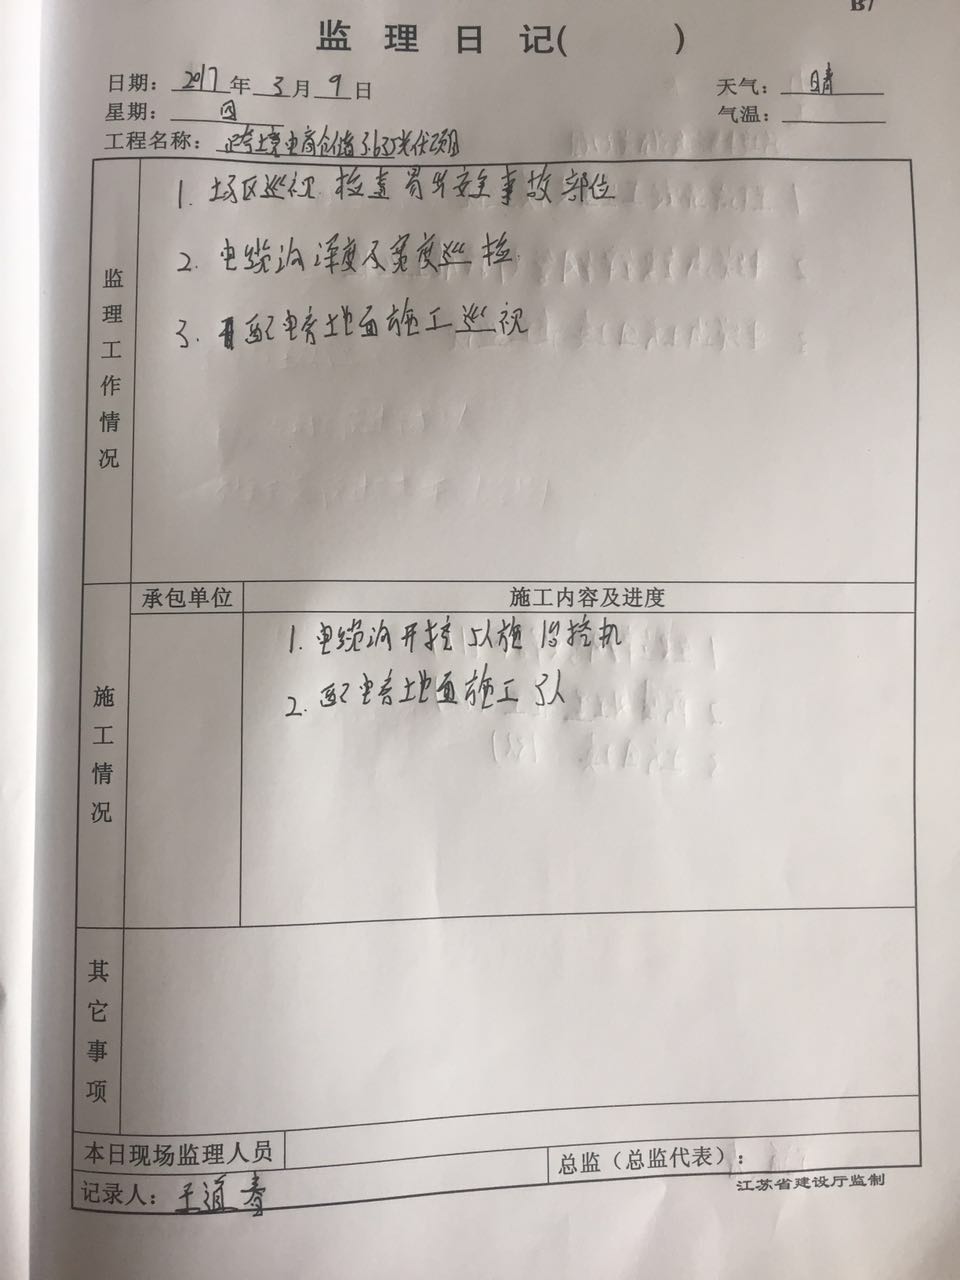 B7
监 理 日 记( )
日期：2017年3月9日
天气：晴
星期：四
气温：
工程名称：跨境电商仓储3.63光伏项目
监理工作情况
1. 场区巡视 检查易发安全事故部位
2. 电缆沟深度及宽度巡检.
3. 配电房地面施工巡视
施工情况
承包单位
施工内容及进度
1. 电缆沟开挖 5人施 1台挖机
2. 配电房地面施工 3人
其它事项
本日现场监理人员
总监（总监代表）：
记录人：王道春
江苏省建设厅监制